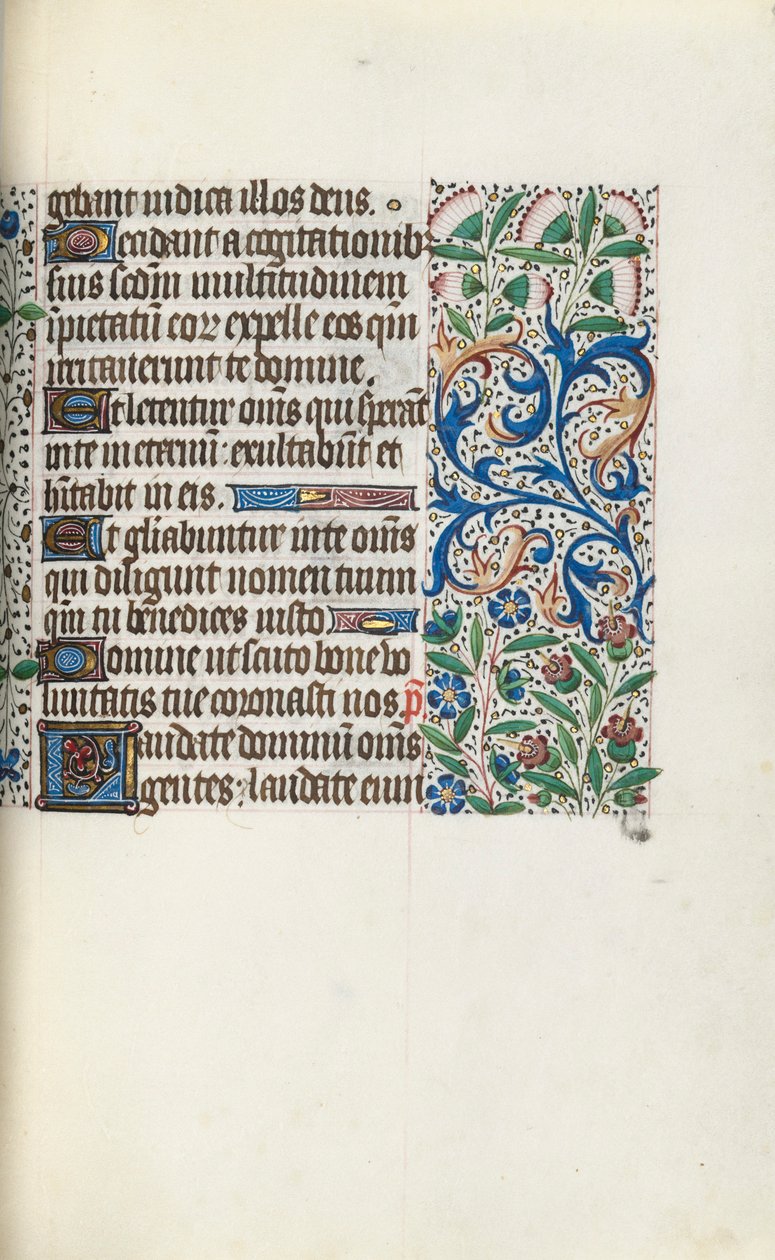 gebant iudica illos deus.
Decidant a cogitationib
suis scdm̄ multitudinem
īpietatū eoꝝ expelle eos qm̄
irritauerunt te domine.
Et letentur om̄s qui sperāt
in te in eternū: exultabūt et
hītabit in eis.
Et gl̄iabuntur in te om̄s
qui diligunt nomen tuum
qm̄ tu bn̄edices iusto
Domine ut scuto bone vo
luntatis tue coronasti nos p̄s.
Laudate dominū om̄s
gentes: laudate eum